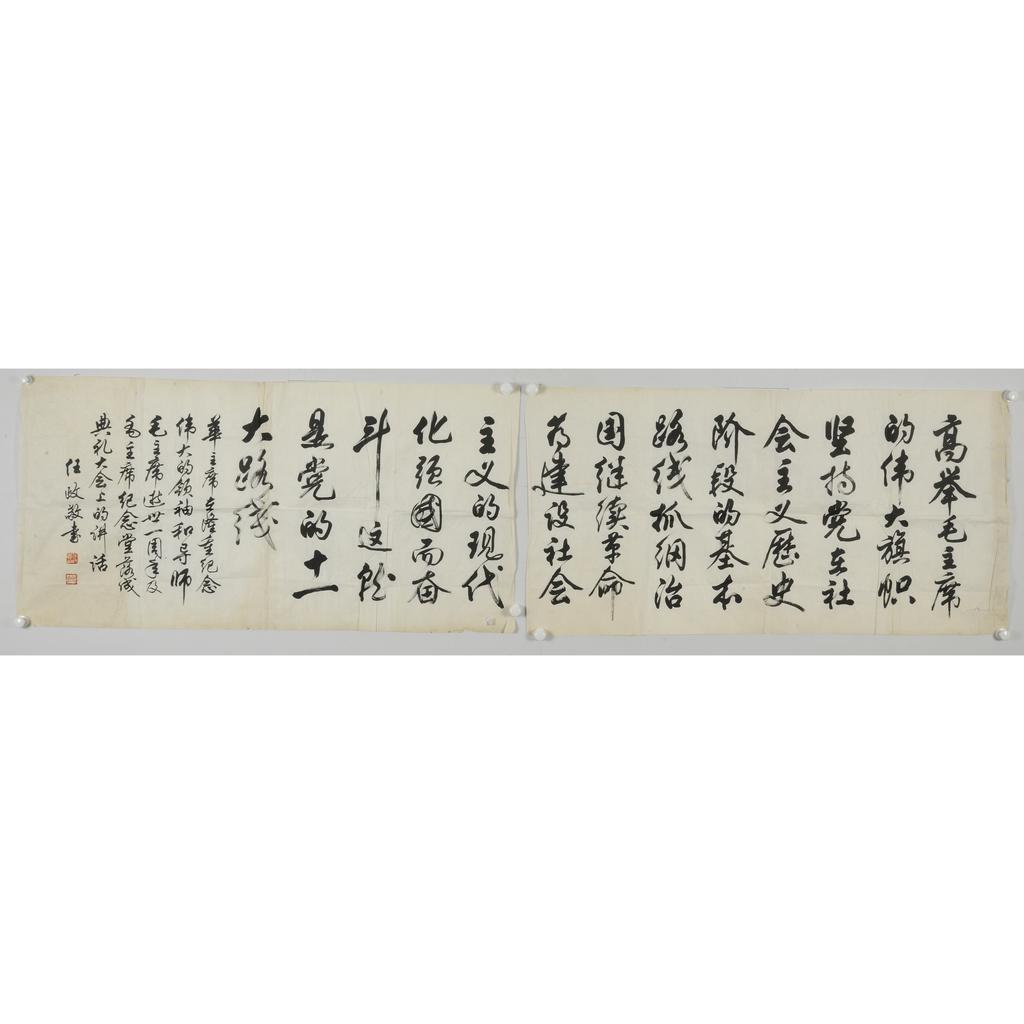 高举毛主席
的伟大旗帜
坚持党在社
会主义历史
阶段的基本
路线抓纲治
国继续革命
为建设社会
主义的现代
化强國而奋
斗这就
是党的十一
大路线
華主席在隆重纪念
伟大的领袖和导师
毛主席逝世一周年及
毛主席纪念堂落成
典礼大会上的讲话
任政敬书